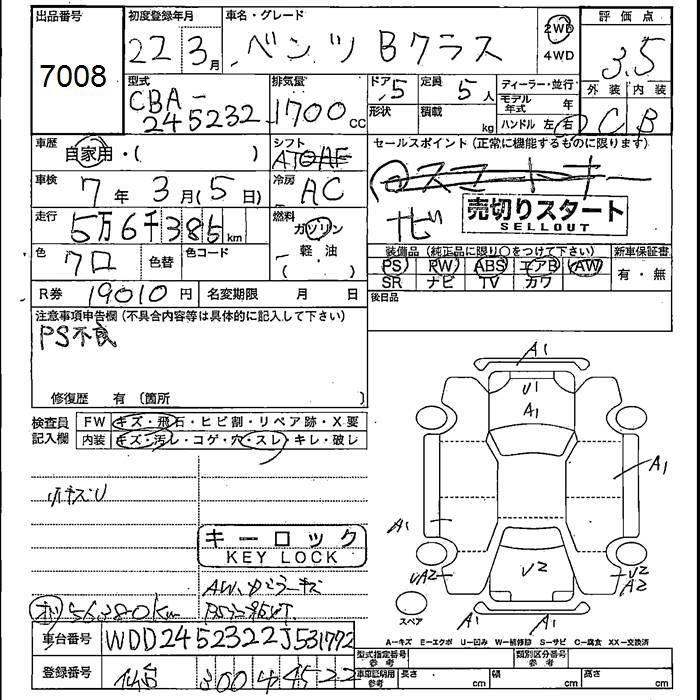 出品番号
7008
初度登録年月
22年3月
車名・グレード
ベンツ Bクラス
2WD
4WD
評価点
3.5
外装 内装
C B
型式
CBA-
245232
排気量
1700cc
ドア 5
形状
定員 5人
積載 kg
ディーラー・並行
モデル年式 年
ハンドル 左・右
車歴
自家用・( )
シフト
セールスポイント(正常に機能するものに限ります)
ナビ
売切りスタート
SELLOUT
車検
7年 3月(5日)
冷房
AC
走行
5万6千385km
燃料
ガソリン
軽・油
( )
色
クロ
色替
色コード
装備品(純正品に限り○をつけて下さい)
新車保証書
PS RW ABS エアB AW
SR ナビ TV カワ
有・無
R券 19010円
名変期限 月 日
後日品
注意事項申告欄(不具合内容等は具体的に記入して下さい)
PS不良
修復歴 有(箇所 )
検査員
記入欄
FW キズ・飛石・ヒビ割・リペア跡・X要
内装 キズ・汚レ・コゲ・穴・スレ・キレ・破レ
キーロック
KEY LOCK
56380km
車台番号 WDD2452322J531772
登録番号 300 4522
A1
U1
A1
A1
A1
U2
UA2
U2
A2
A1
スペア
A-キズ E-エクボ U-凹み W-補修跡 S-サビ C-腐食 XX-交換済
型式指定番号
参考
類別区分番号
参考
車庫証明用
参考
長さ cm
幅 cm
高さ cm